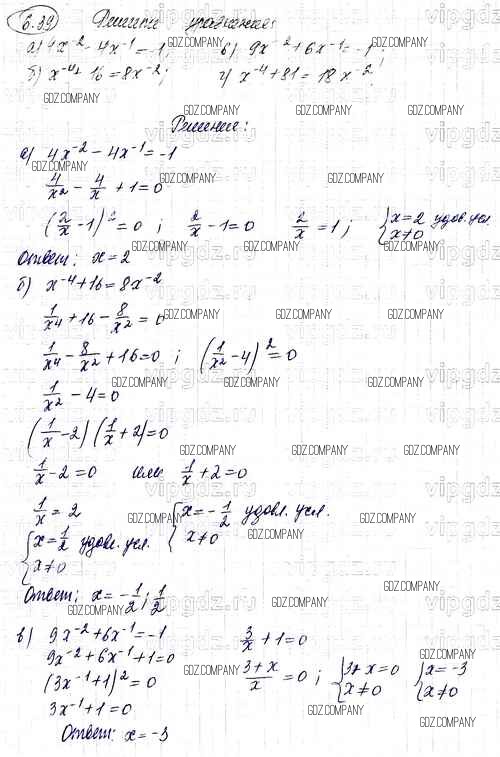 6.39 Решить уравнение:
а) 4x⁻² - 4x⁻¹ = -1; в) 9x⁻² + 6x⁻¹ = -1;
б) x⁻⁴ + 16 = 8x⁻²; г) x⁻⁴ + 81 = 18x⁻²
Решение:
а) 4x⁻² - 4x⁻¹ = -1
4/x² - 4/x + 1 = 0
(2/x - 1)² = 0; 2/x - 1 = 0 2/x = 1; { x = 2 удов. усл. x ≠ 0
Ответ: x = 2
б) x⁻⁴ + 16 = 8x⁻²
1/x⁴ + 16 - 8/x² = 0
1/x⁴ - 8/x² + 16 = 0; (1/x² - 4)² = 0
1/x² - 4 = 0
(1/x - 2)(1/x + 2) = 0
1/x - 2 = 0 или 1/x + 2 = 0
1/x = 2 { x = -1/2 удовл. усл. x ≠ 0
{ x = 1/2 удов. усл. x ≠ 0
Ответ: x = -1/2; 1/2
в) 9x⁻² + 6x⁻¹ = -1 3/x + 1 = 0
9x⁻² + 6x⁻¹ + 1 = 0 (3 + x)/x = 0; { 3 + x = 0 x ≠ 0 { x = -3 x ≠ 0
(3x⁻¹ + 1)² = 0
3x⁻¹ + 1 = 0
Ответ: x = -3
GDZ.COMPANY
vipgdz.ru